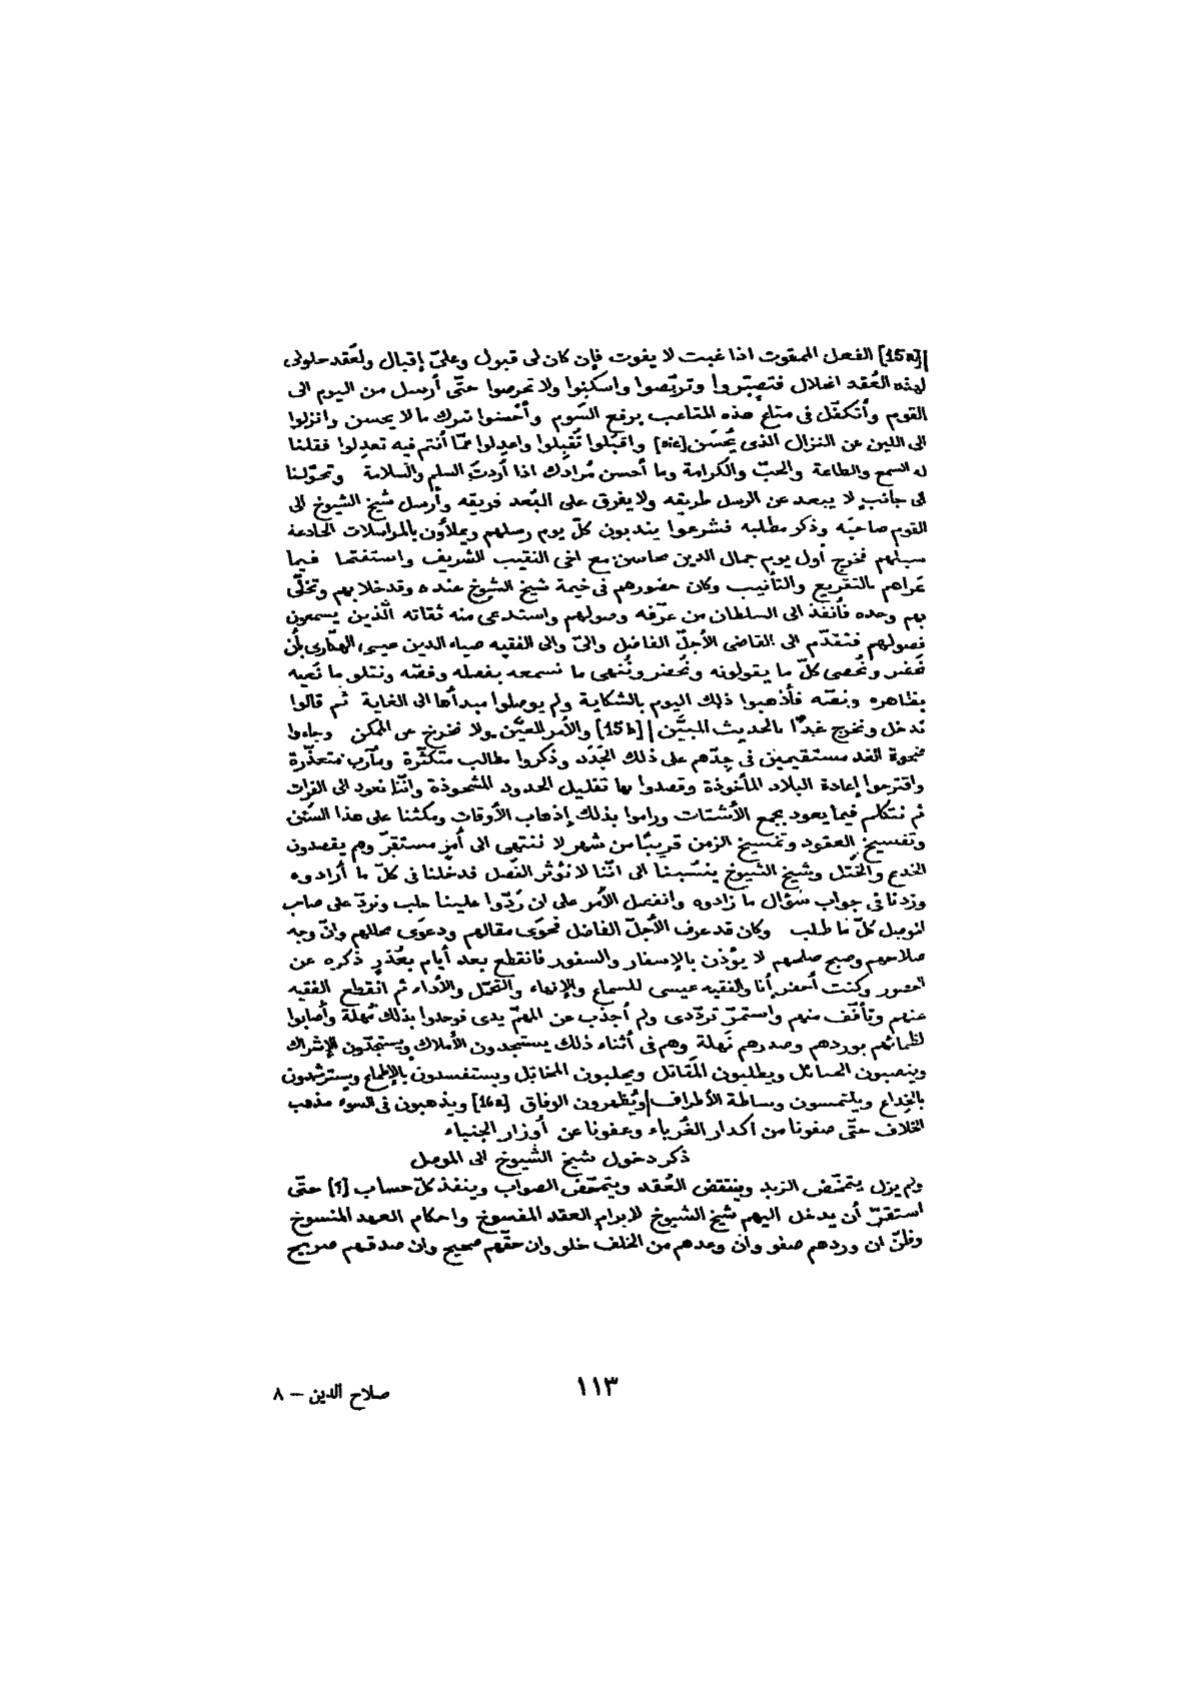 [15a] الفعل الممقوت اذا غبت لا يفوت فإن كان لى قبول وعلىّ إقبال ولعُقد حلولى
لهذه العُقد انحلال فتصبّروا وتربّصوا واسكنوا ولا تحرصوا حتّى أرسل من اليوم الى
القوم وأتكفّل فى متاع هذه المتاعب برفع السَّوم وأحسنوا بترك ما لا يحسن وانزلوا
الى اللين عن النزال الذى يُخشن [sic] واقبلوا تُقبلوا واعدلوا عمّا أنتم فيه تعدلوا فقلنا
له السمع والطاعة والحبّ والكرامة وما أحسن مُرادك اذا أردتَ السلم والسلامة وتحوّلنا
الى جانب لا يبعد عن الرسل طريقه ولا يفرق على البُعد فريقه وأرسل شيخ الشيوخ الى
القوم صاحبَه وذكر مطلبه فشرعوا يندبون كلّ يوم رسلهم ويملأون بالمراسلات الخادعة
سبلهم فخرج أول يوم جمال الدين محاسن مع اخى النقيب الشريف واستفتحا فيما
عَراهم بالتقريع والتأنيب وكان حضورهم فى خيمة شيخ الشيوخ عنده وقد خلا بهم وتخلّى
بهم وحده فأنفذ الى السلطان من عرّفه وصولهم واستدعى منه ثقاته الّذين يسمعون
فصولهم فتقدّم الى القاضى الأجلّ الفاضل والىّ والى الفقيه ضياء الدين عيسى الهكّارى بأن
نَحضر ونُحصى كلّ ما يقولونه ونَحضر ونُنهى ما نسمعه بفصله وفصّه ونتلو ما نَعيه
بظاهره ونصّه فأذهبوا ذلك اليوم بالشكاية ولم يوصلوا مبدأها الى الغاية ثم قالوا
ندخل ونخرج غداً بالحديث المبيَّن [15b] والأمر المعيَّن ولا نخرج عن الممكن وجاءوا
ضحوة الغد مستقيمين فى جدّهم على ذلك الجَدَد وذكروا مطالب متكثّرة ومآرب متعذّرة
واقترحوا إعادة البلاد المأخوذة وقصدوا بها تفليل الحدود المشحوذة وانّنا نعود الى الفرات
ثم نتكلّم فيما يعود بجمع الأشتات وراموا بذلك إذهاب الأوقات ومكثنا على هذا السَّنَن
وتفسيخ العقود وتفسيخ الزمن قريباً من شهر لا ننتهى الى أمرٍ مستقرّ وهم يقصدون
الخدع والخَتل وشيخ الشيوخ ينسُبنا الى انّنا لا نؤثر الفَصل فدخلنا فى كلّ ما أرادوه
وزدنا فى جواب سؤال ما زادوه وانفصل الأمر على ان رَدّوا علينا حلب ونردّ على صاحب
الموصل كلّ ما طلب وكان قد عرف الأجلّ الفاضل فحوَى مقالهم ودعوَى محالهم وانّ وجه
صلاحهم وصبح صلحهم لا يؤذن بالإسفار والسفور فانقطع بعد أيام بعُذرٍ ذكره عن
الحضور وكنت أحضر أنا والفقيه عيسى للسماع والإنهاء والتحمّل والأداء ثم انقطع الفقيه
عنهم وتأفّف منهم واستمرّ تردّدى ولم أجذب عن المهمّ يدى فوجدوا بذلك مُهلة وأصابوا
لظمائهم بوردهم وصدرهم نَهلة وهم فى أثناء ذلك يستنجدون الأملاك ويستجدّون الإشراك
وينصبون الحبائل ويطلبون المَقاتل ويجلبون المخاتل ويستفسدون بالإطماع ويسترشدون
بالخداع ويلتمسون وساطة الأطراف ويُظهرون الوفاق [16a] ويذهبون فى السوء مذهب
الخلاف حتّى صفونا من أكدار الغُرباء وعفونا عن أوزار الجنباء
ذكر دخول شيخ الشيوخ الى الموصل
ولم يزل يتمخّض الزبد وينتقض العُقد ويتمحّض الصواب وينفذ كلّ حساب [1] حتّى
استقرّ أن يدخل اليهم شيخ الشيوخ لإبرام العقد المفسوخ وإحكام العهد المنسوخ
وظنّ ان وردهم صفو وان وعدهم من الخلف خلو وان حقّهم صحيح وان صدقهم صريح
١١٣
صلاح الدين – ٨